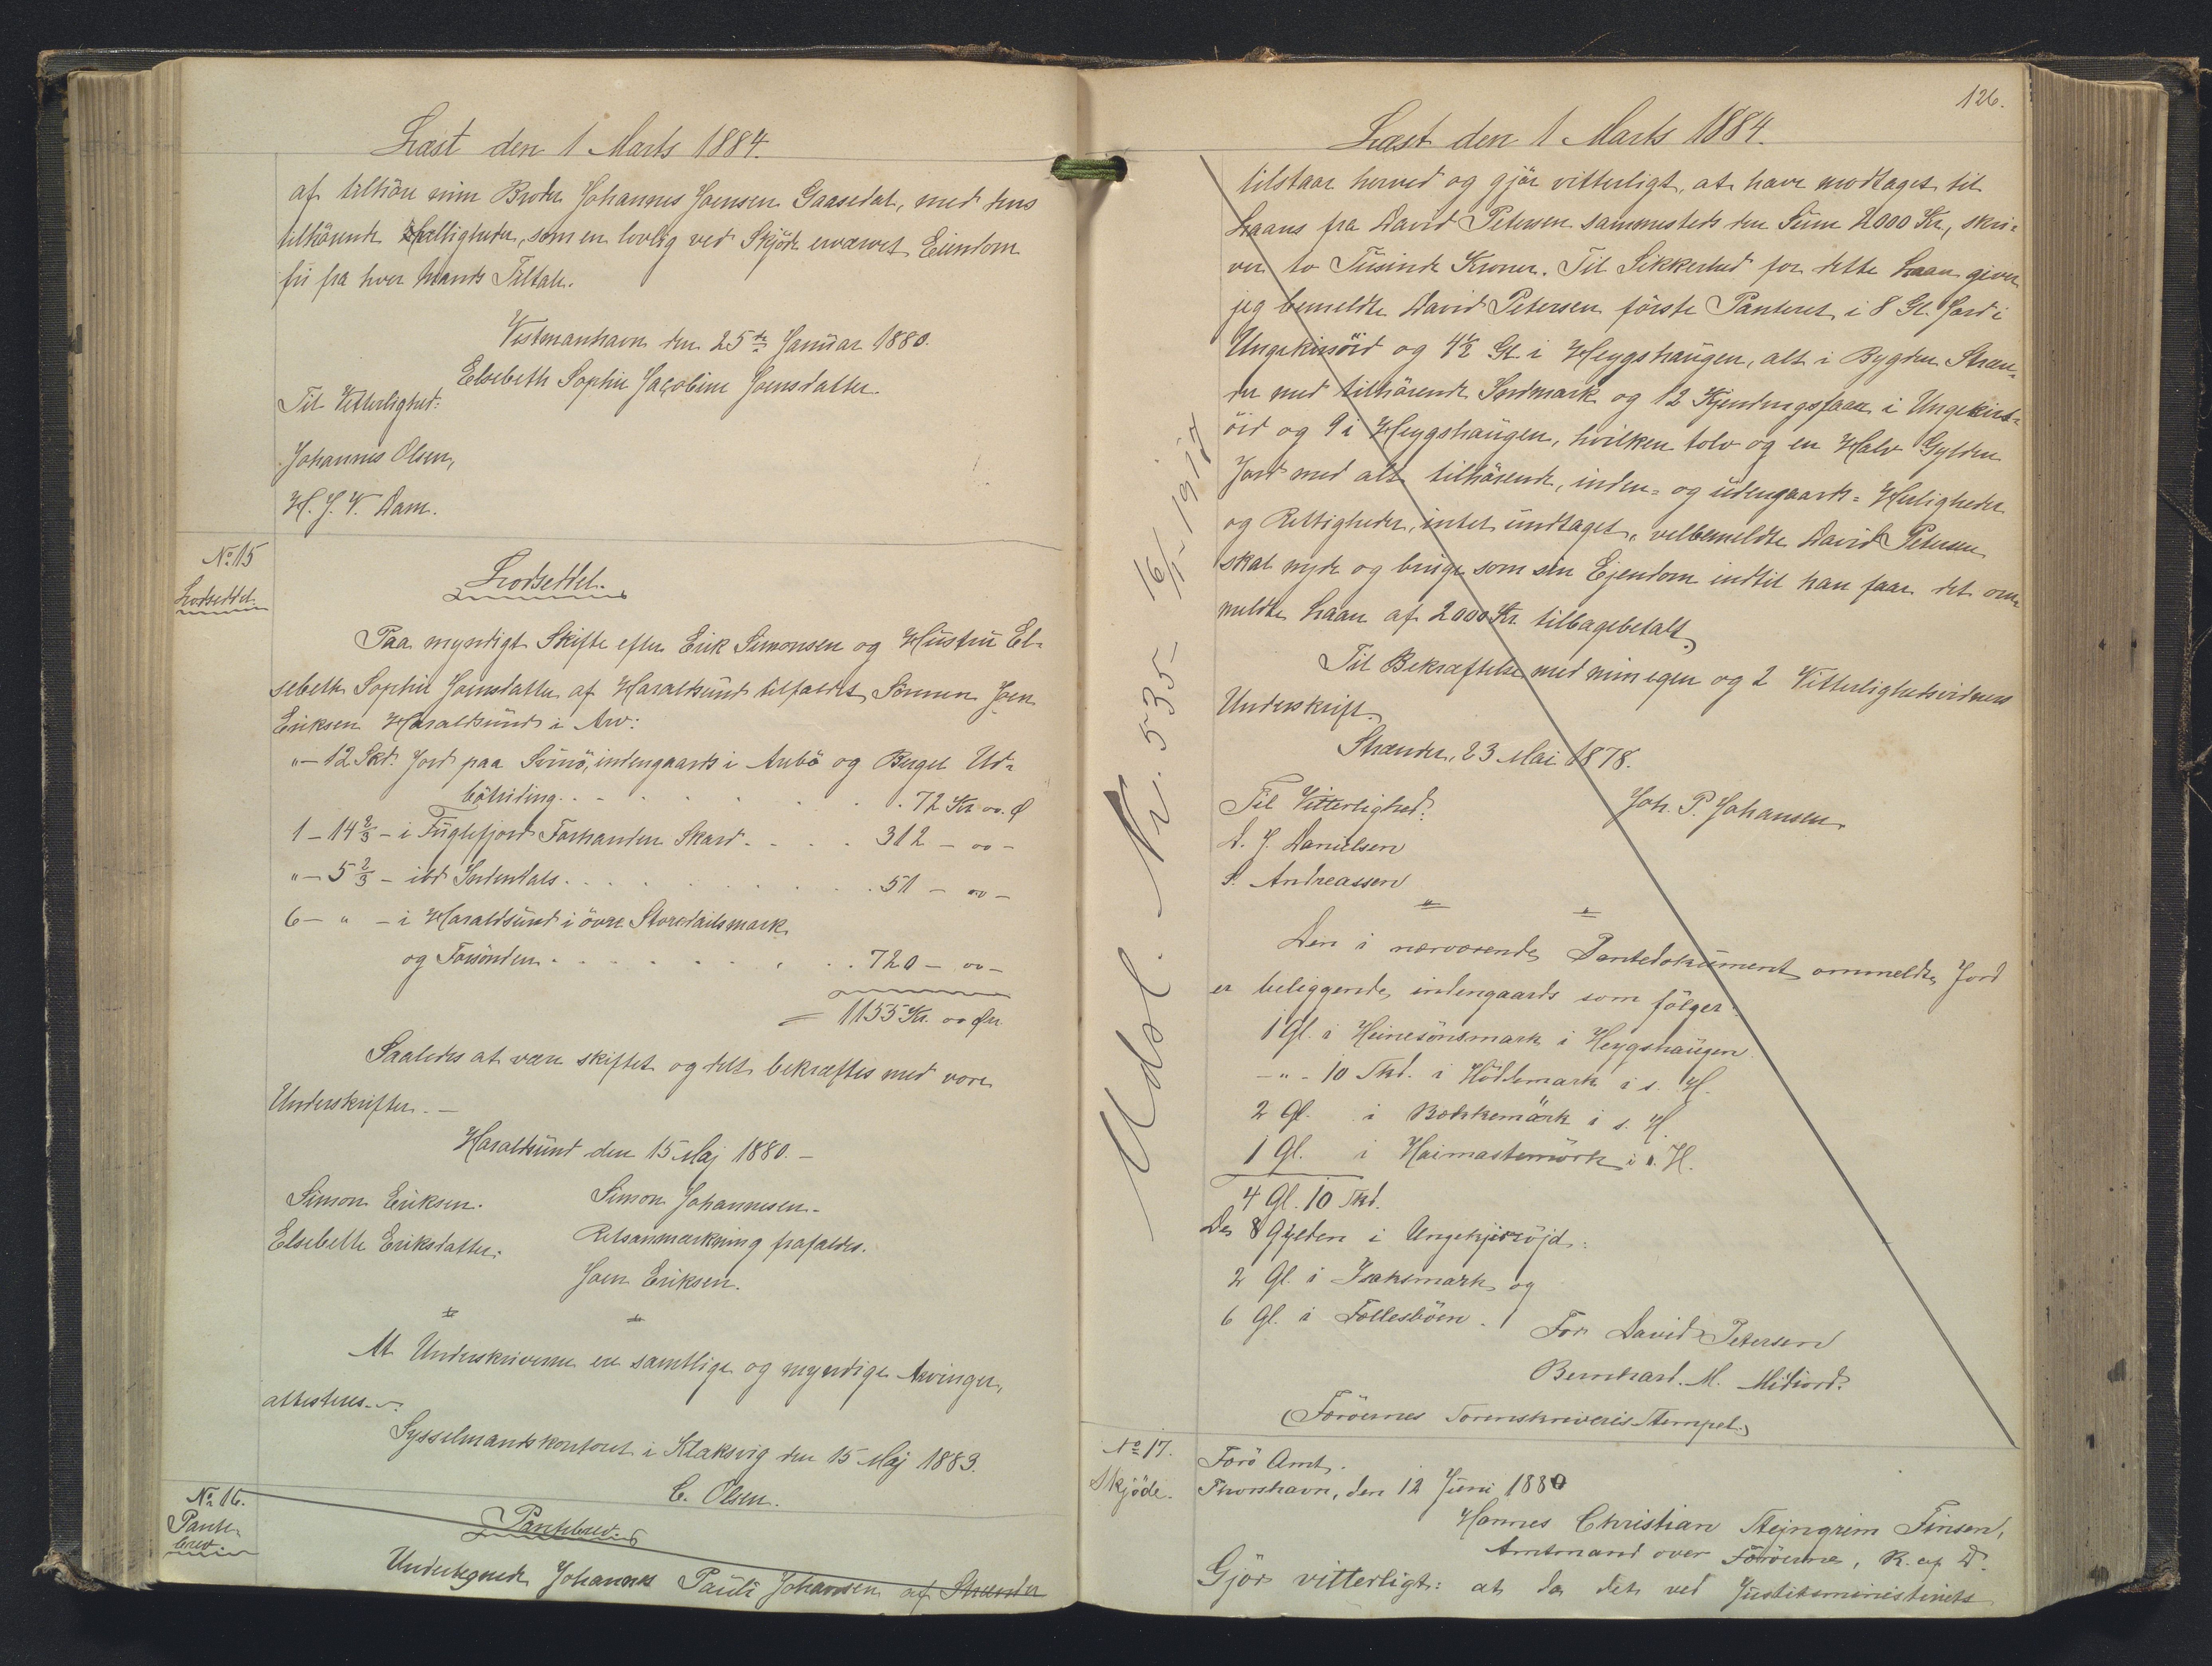 Læst den 1 Marts 1884.
af tilhöre min Broder Johannes Joensen Gaasedal, med dens
tilhörende Herligheder, som en lovlig ved Skjöde erværvet Eiendom
fri fra hver Mands Tiltale.
Vestmanhavn den 25de Januar 1880.
Elsebeth Sophie Jacobine Joensdatter.
Til Vitterlighed:
Johannes Olsen,
H. J. V. Dam.
No 15
Lodseddel.
Lodseddel.
Paa myndigt Skifte efter Erik Simonsen og Hustru El-
sebeth Sophie Joensdatter af Haraldsund tilfaldt Sönnen Joen
Eriksen Haraldsund i Arv:
"– 12 Skd. Jord paa Svinö, indengaards i Aubö og Berget Ud-
bötriding . . . . 72 Kr oo. Ø
1 – 14 2/3 – i Fuglefjord Forhanden Skard . . . . 312 – oo –
"– 5 2/3 – ibd Indendals . . . . 51 – oo –
6 – " – i Haraldsund i övre Storedailsmark
og Forsönden . . . . 720 – oo –
= 1155 Kr. oo Øre
Saaledes at være skiftet og delt bekræftes med vore
Underskrifter. –
Haraldsund den 15 Maj 1880. –
Simon Eriksen. Simon Johannesen.
Elsebeth Eriksdatter. Retsanmærkning frafaldes.
Joen Eriksen.
At Underskriverne ere samtlige og myndige Arvinger,
attesteres.
Sysselmandskontoret i Klaksvig den 15 Maj 1883.
C. Olsen.
No 16.
Pante-
brev.
Pantebrev.
Undertegnede Johannes Pauli Johansen af Strænder
126.
Læst den 1 Marts 1884.
tilstaar herved og gjör vitterligt, at have modtaget til
Laans fra David Petersen sammesteds den Sum 2000 Kr, skri-
ver to Tusinde Kroner. Til Sikkerhed for dette Laan giver
jeg bemeldte David Petersen förste Panteret i 8 Gl. Jord i
Ungekirsöid og 4½ Gl i Heygshaugen, alt i Bygden Stræn-
der med tilhörende Indmark og 12 Kjendingsfaar i Ungekirs-
öid og 9 i Heygshaugen, hvilken tolv og en Halv Gylden
Jord med alt tilhörende, inden- og udengaards- Herligheder
og Rettigheder, intet undtaget, velbemeldte David Petersen
skal nyde og bruge som sin Ejendom indtil han faar det om-
meldte Laan af 2000 Kr. tilbagebetalt.
Til Bekræftelse med min egen og 2 Vitterlighedsvidners
Underskrift.
Strænder, 23 Mai 1878.
Til Vitterlighed: Joh. P. Johansen.
D. J. Danielsen
S. Andreassen
Den i nærværende Pantedokument ommeldte Jord
er beliggende indengaards som fölger:
1 Gl. i Heinesönsmark i Heygshaugen.
– " – 10 Skd. i Hödlemark i s. H.
2 Gl. i Bokkemörk i s. H.
1 Gl. i Haimastemörk i s. H.
4 Gl. 10 Skd.
De 8 Gylden i Ungekjirsöjd:
2 Gl. i Isaksmark og
6 Gl. i Fællesböen.
For David Petersen
Bernhard. M. Midiord.
(Færöernes Sorenskriveris Stempel.)
Udsl. Nr. 535 – 16/1 – 1917
No 17.
Skjöde.
Færö Amt.
Thorshavn, den 12 Juni 1880
Hannes Christian Steingrim Finsen,
Amtmand over Færöerne, R. af D.
Gjör vitterligt: at da det ved Justitsministeriets